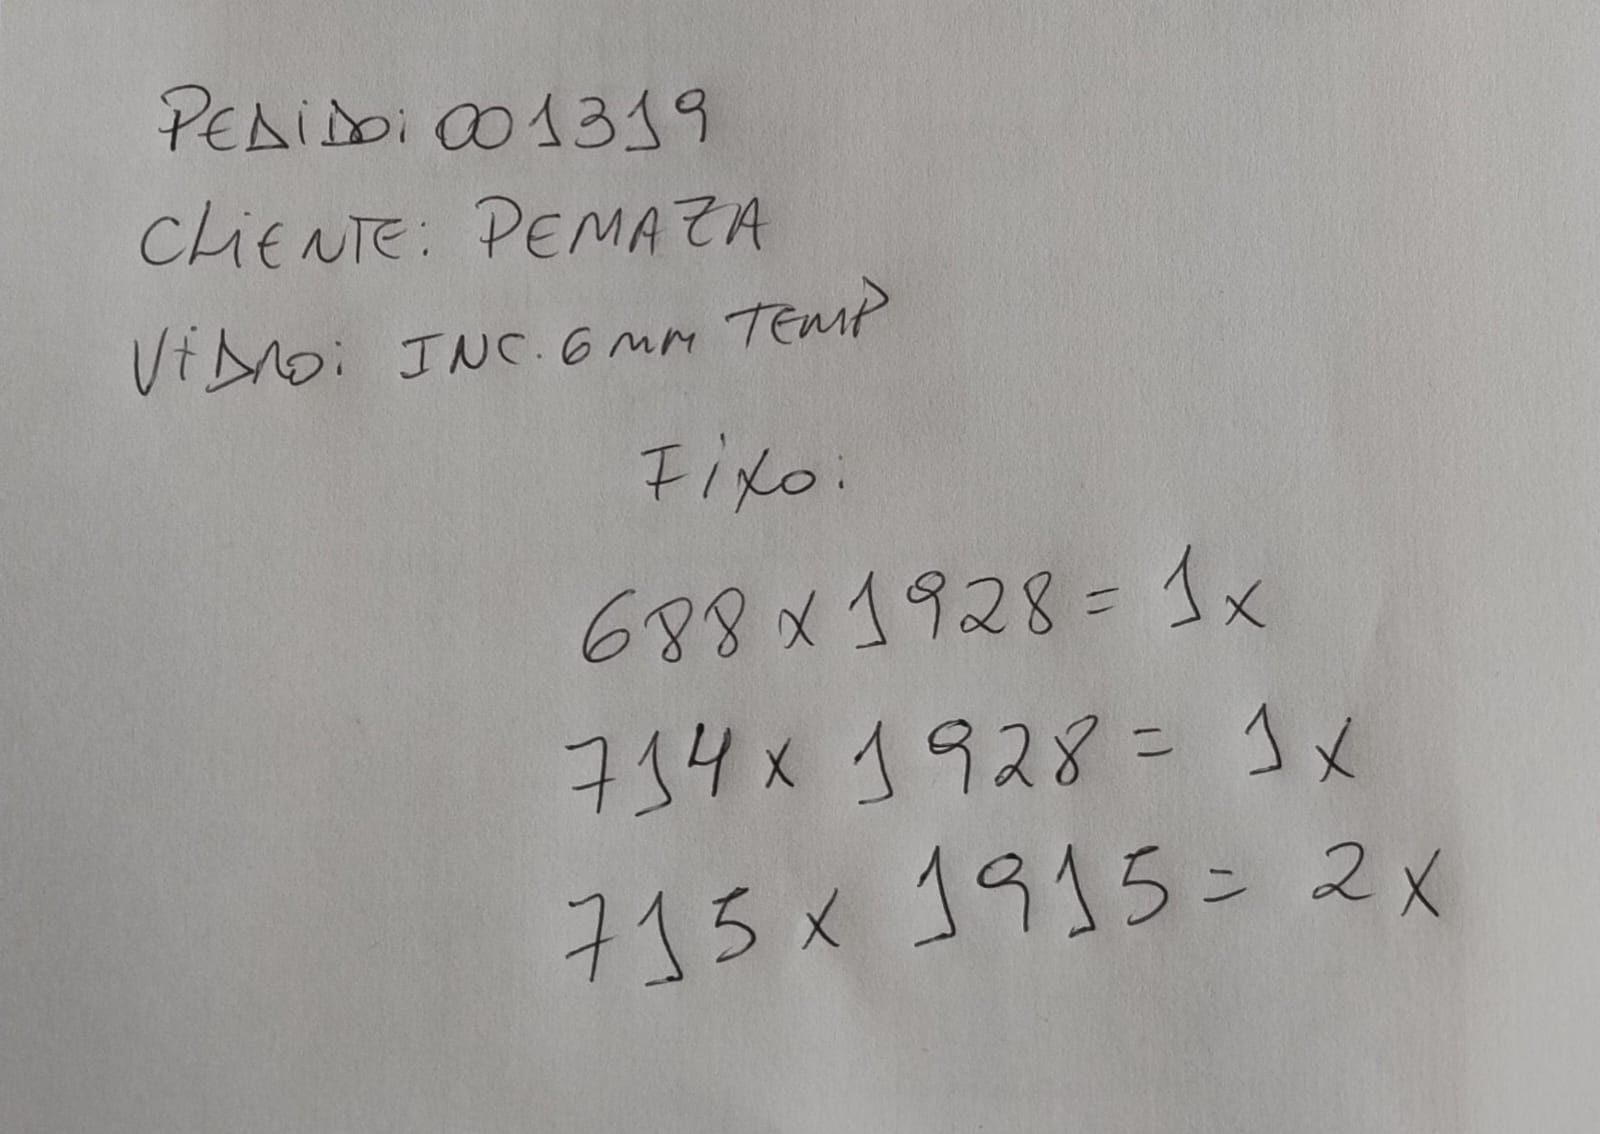 PEDIDO: 001319
CLIENTE: PEMAZA
VIDRO: INC. 6mm TEMP
Fixo:
688 x 1928 = 1x
714 x 1928 = 1x
715 x 1915 = 2x